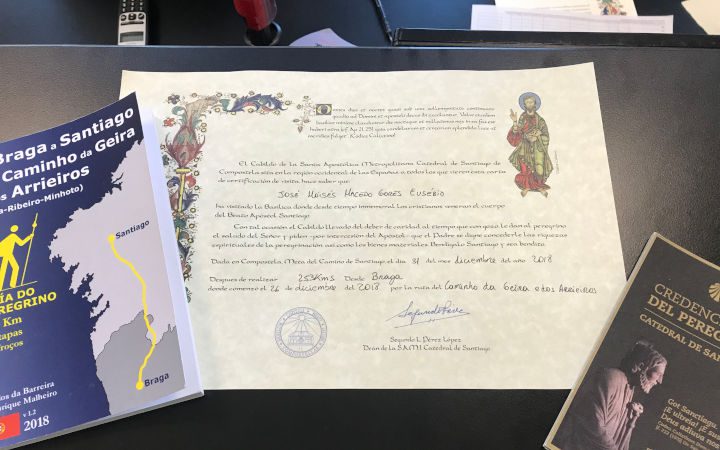 Braga a Santiago
Caminho da Geira
os Arrieiros
a-Ribeiro-Minhoto)
Santiago
ÍA DO
EREGRINO
Km
tapas
Troços
Braga
os da Barreira
rique Malheiro
v 1.2
2018
El Cabildo de la Santa Apostólica Metropolitana Catedral de Santiago de
Compostela sita en la región occidental de las Españas, a todos los que vieren esta carta
de certificación de visita, hace saber que:
José Moisés Macedo Gomes Eusébio
ha visitado la Basílica donde desde tiempo inmemorial los cristianos veneran el cuerpo
del Beato Apóstol Santiago.
Con tal ocasión el Cabildo llevado del deber de caridad, al tiempo que con gozo le dan al peregrino
el saludo del Señor y piden -por intercesión del Apóstol- que el Padre se digne concederle las riquezas
espirituales de la peregrinación, así como los bienes materiales. Bendígalo Santiago y sea bendito.
Dada en Compostela, Meta del Camino de Santiago, el día 31 del mes diciembre del año 2018
Despues de realizar 253 Kms Desde Braga
donde comenzó el 26 de diciembre del 2018 por la ruta del Caminho da Geira e dos Arrieiros
Segundo L. Pérez López
Deán de la S.A.M.I. Catedral de Santiago
CREDENC
DEL PEREGR
CATEDRAL DE SA
Got Sanctiagu.
¡E ultreia! ¡E su
Deus adieva nos